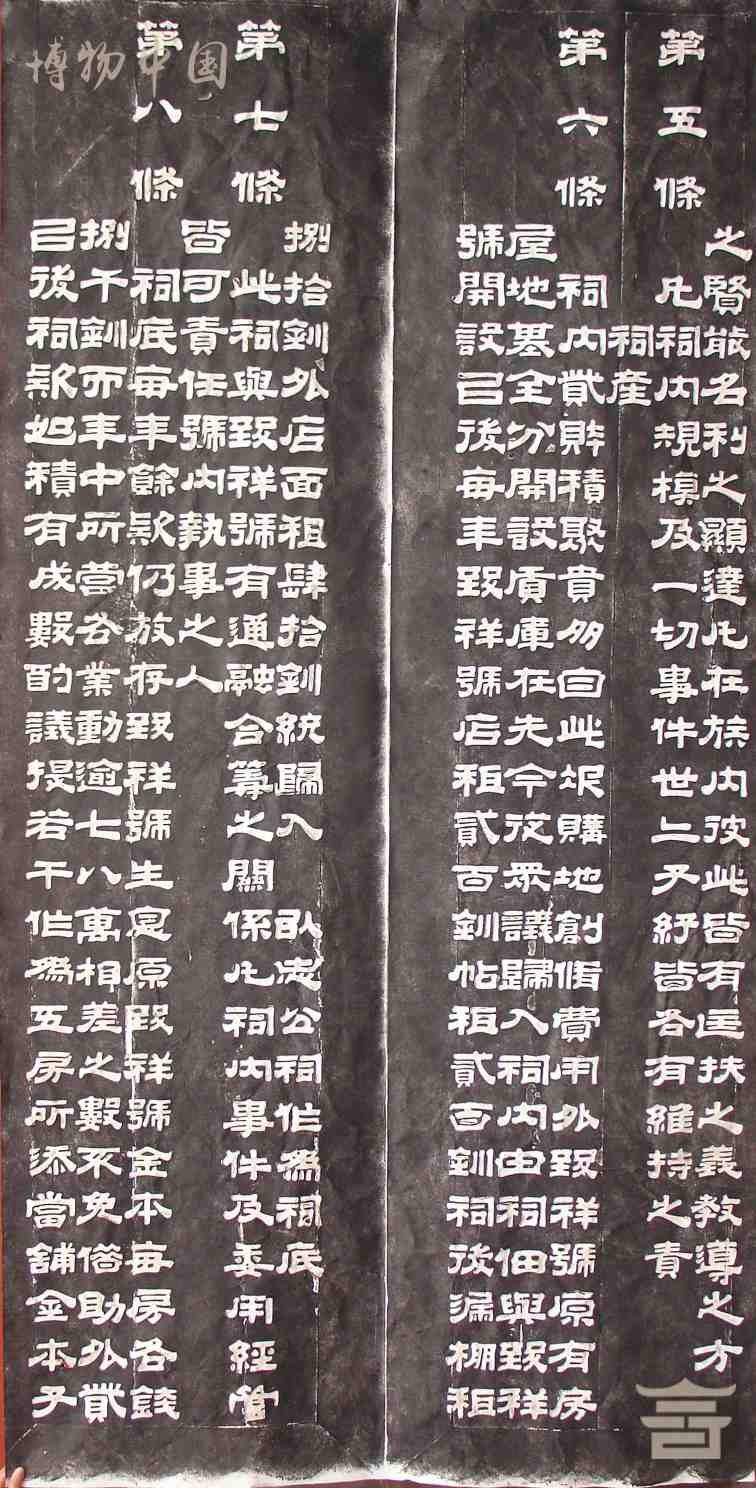 博物中国
之賢哉名利之顯達凡在族內彼此皆有匡扶之義教導之方
第五條 凡祠內規模及一切事件世二子孫皆各有維持之責
祠產
第六條 祠內貲財積聚貴多自此次購地創脩費用外致祥號原有房
屋地基全分開設質庫在先今從眾議歸入祠內由祠佃與致祥
號開設已後每年致祥號店租貳百釧帖租貳百釧祠後漏棚租
捌拾釧外店面租肆拾釧統歸入 公祠作為祠底
第七條 此祠與致祥號有通融合籌之關係凡祠內事件及委用經管
皆可責任號內執事之人
第八條 祠底每年餘款仍放存致祥號生息原致祥號金本每房各錢
捌千釧而年中所營各業動逾七八萬相差之數不免借助外貲
已後祠款如積有成數酌議提若干作為五房所添當舖金本子